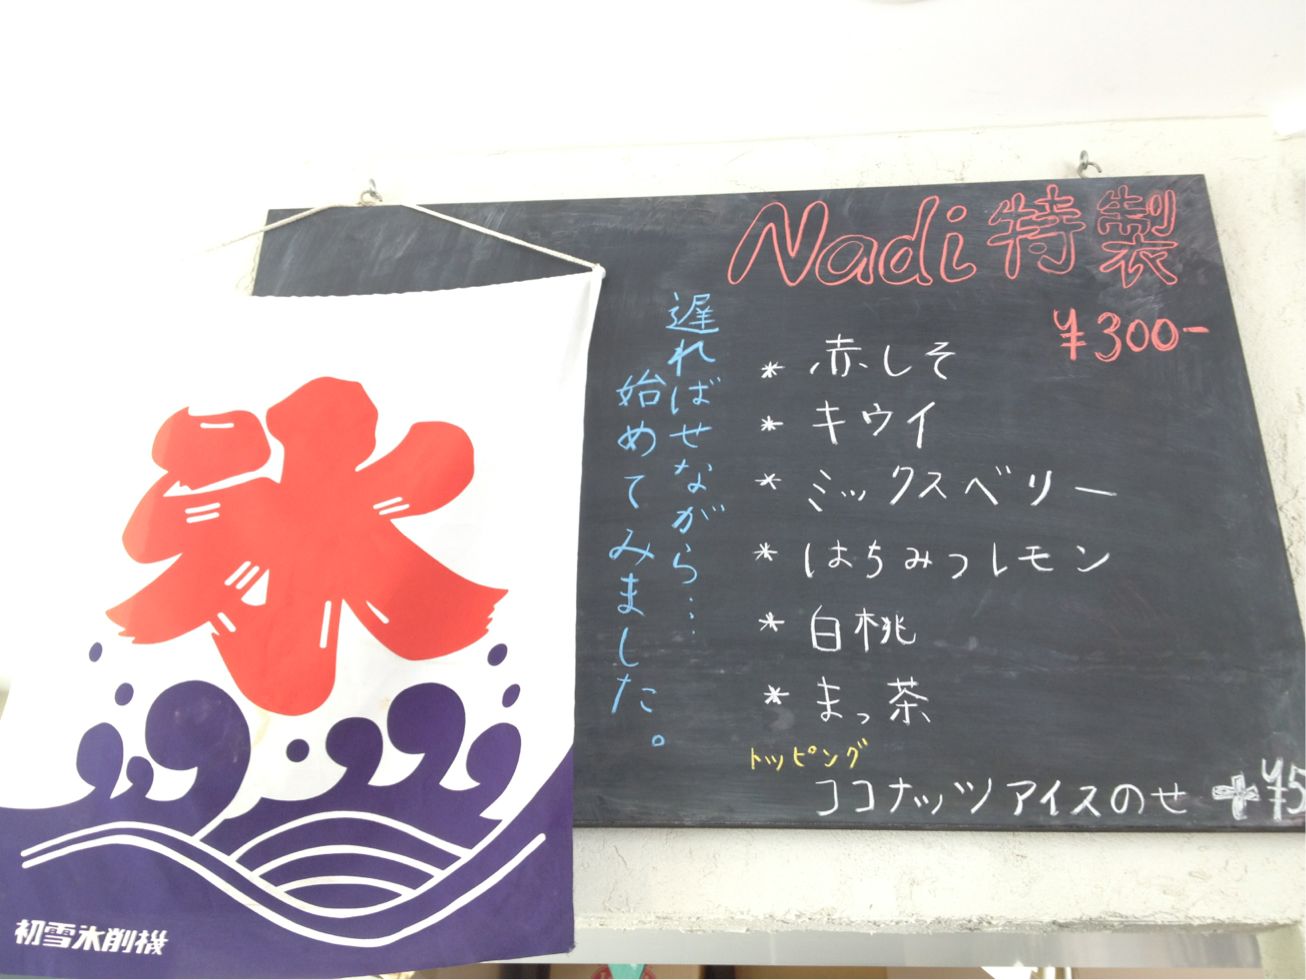 Nadi特製
¥300-
遅ればせながら…
始めてみました。
* 赤しそ
* キウイ
* ミックスベリー
* はちみつレモン
* 白桃
* まっ茶
トッピング
ココナッツアイスのせ +¥5
氷
初雪氷削機